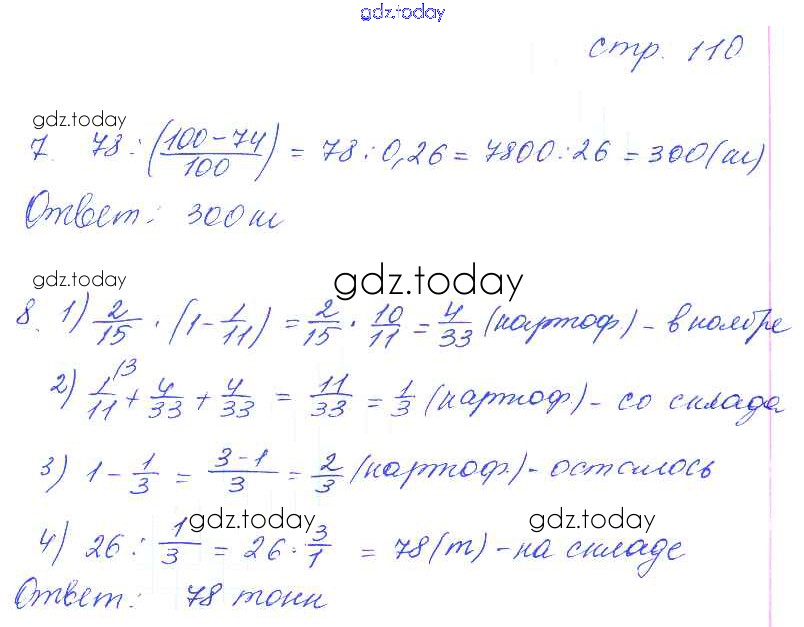 gdz.today
стр. 110
gdz.today
7. 78 : (100-74/100) = 78 : 0,26 = 7800 : 26 = 300 (м)
Ответ: 300 м
gdz.today
gdz.today
8. 1) 2/15 · (1 - 1/11) = 2/15 · 10/11 = 4/33 (картоф.) - в ноябре
2) 1/11 (3 + 4/33 + 4/33 = 11/33 = 1/3 (картоф.) - со склада
3) 1 - 1/3 = 3-1/3 = 2/3 (картоф.) - осталось
gdz.today
gdz.today
4) 26 : 1/3 = 26 · 3/1 = 78 (т) - на складе
Ответ: 78 тонн